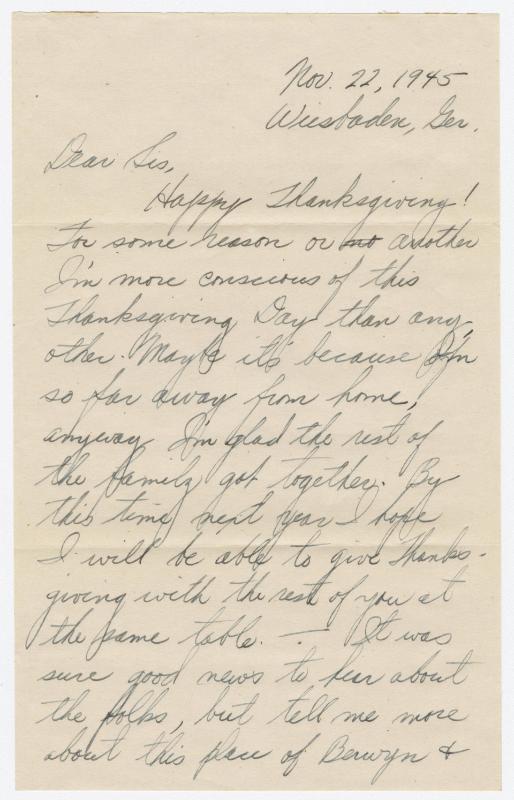 Nov. 22, 1945
Wiesbaden, Ger.
Dear Sis,
Happy Thanksgiving!
For some reason or no another
I'm more conscious of this
Thanksgiving Day than any
other. Maybe it's because I'm
so far away from home,
anyway I'm glad the rest of
the family got together. By
this time next year I hope
I will be able to give thanks-
giving with the rest of you at
the same table. — It was
sure good news to hear about
the folks, but tell me more
about this place of Berwyn &